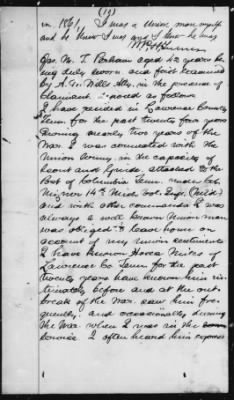 (19)
in 1861. I was a Union man myself
and he knew I was and I knew he was
Geo. W. T. Parham aged 42 years be
ing duly sworn and first examined
by A. G. Wills Atty, in the presence of
claimant. Deposed as follows
I have resided in Lawrence County
Tenn for the past twenty four years
During nearly two years of the
War. I was connected with the
Union Army, in the capacity of
Scout and Guide, attached to the
Post of Columbia Tenn. under Col.
14th Mich. Vol.
and with other commands I was
always a well known Union man
was obliged to leave home on
account of my union sentiments
I have known Hosea of
Lawrence Co Tenn for the past
twenty years have known him in-
timately before and at the out-
break of the War. saw him fre-
quently. and occasionally during
the War. when I was in the
service. I often heard him express